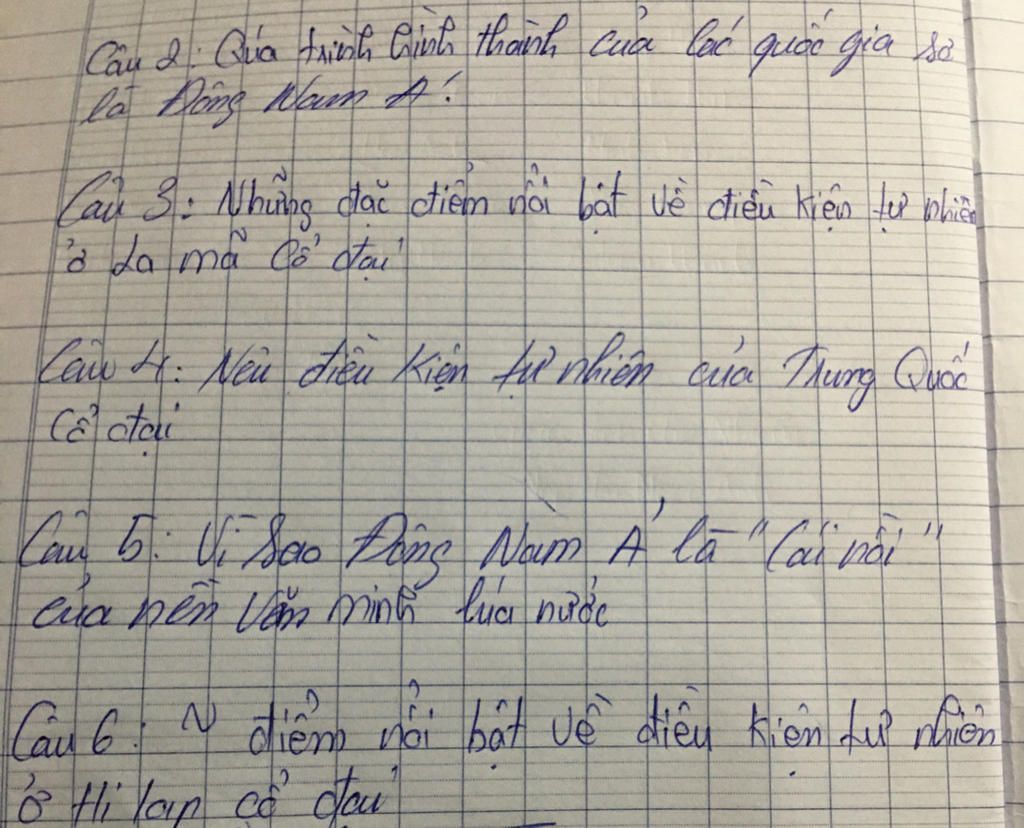 Câu 2: Qúa trình hình thành của các quốc gia sơ
là Đông Nam Á!
Câu 3: Những đặc điểm nổi bật về điều kiện tự nhiên
ở La mã Cổ đại
Câu 4: Nêu điều kiện tự nhiên của Trung Quốc
Cổ đại
Câu 5: Vì Sao Đông Nam Á là "Cái nôi"
của nền Văn minh lúa nước
Câu 6: N điểm nổi bật về điều kiện tự nhiên
ở Hi lạp cổ đại